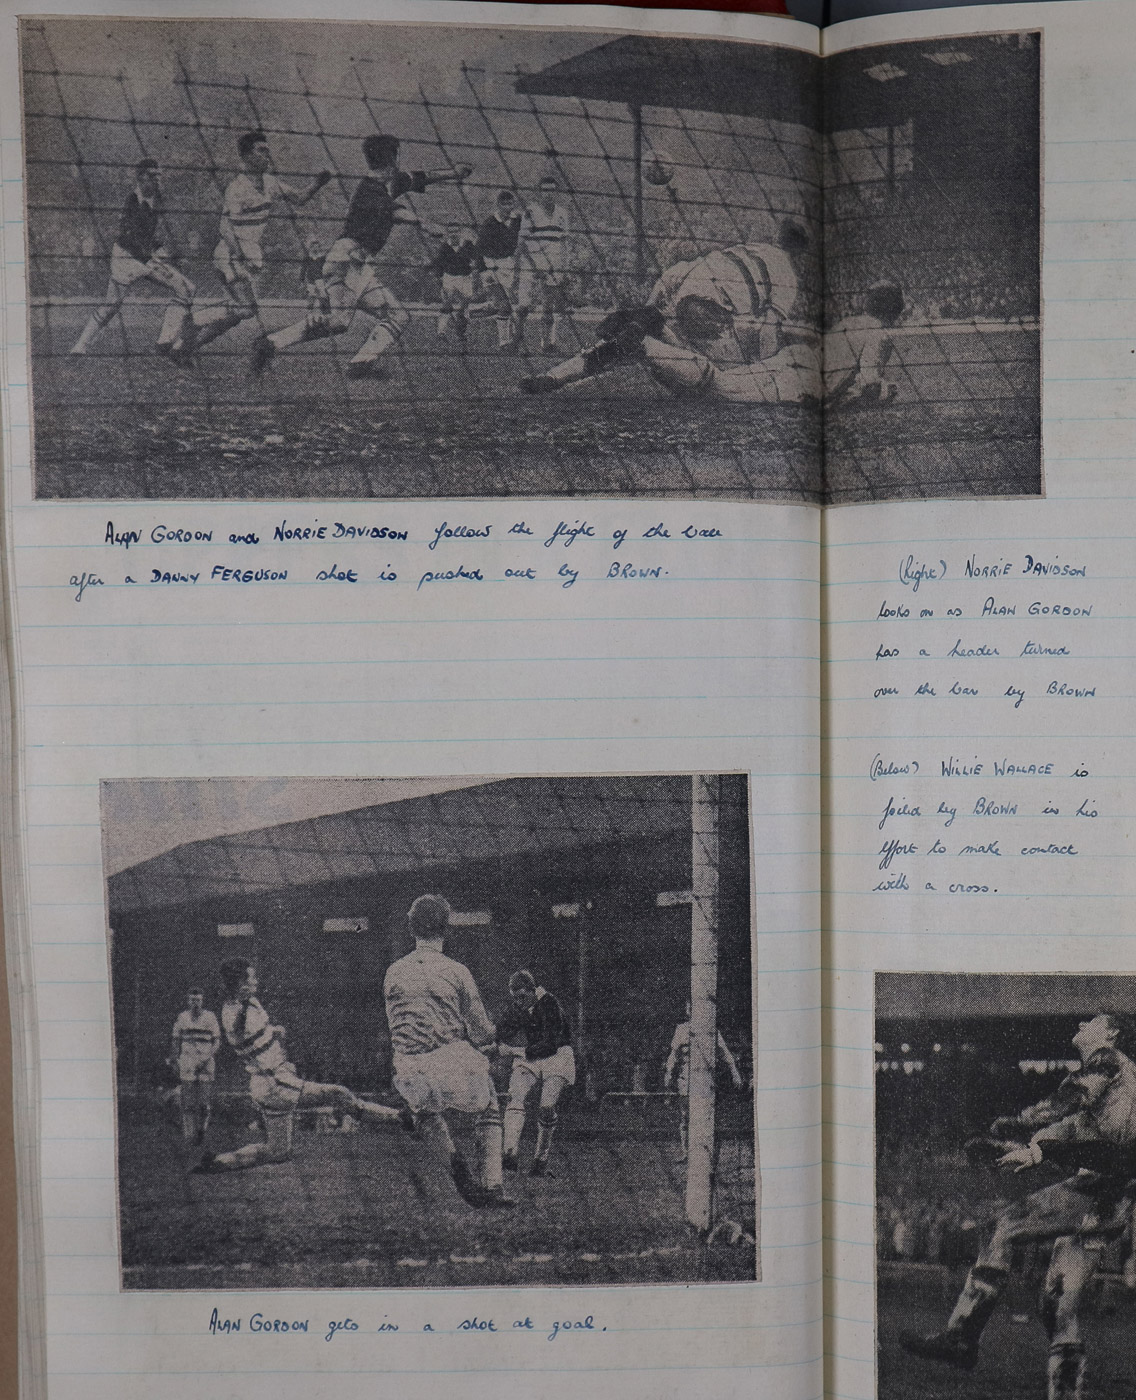 ALAN GORDON and NORRIE DAVIDSON follow the flight of the ball
after a DANNY FERGUSON shot is pushed out by BROWN.
(Right) NORRIE DAVIDSON
looks on as ALAN GORDON
has a header turned
over the bar by BROWN
(Below) WILLIE WALLACE is
foiled by BROWN in his
effort to make contact
with a cross.
ALAN GORDON gets in a shot at goal.